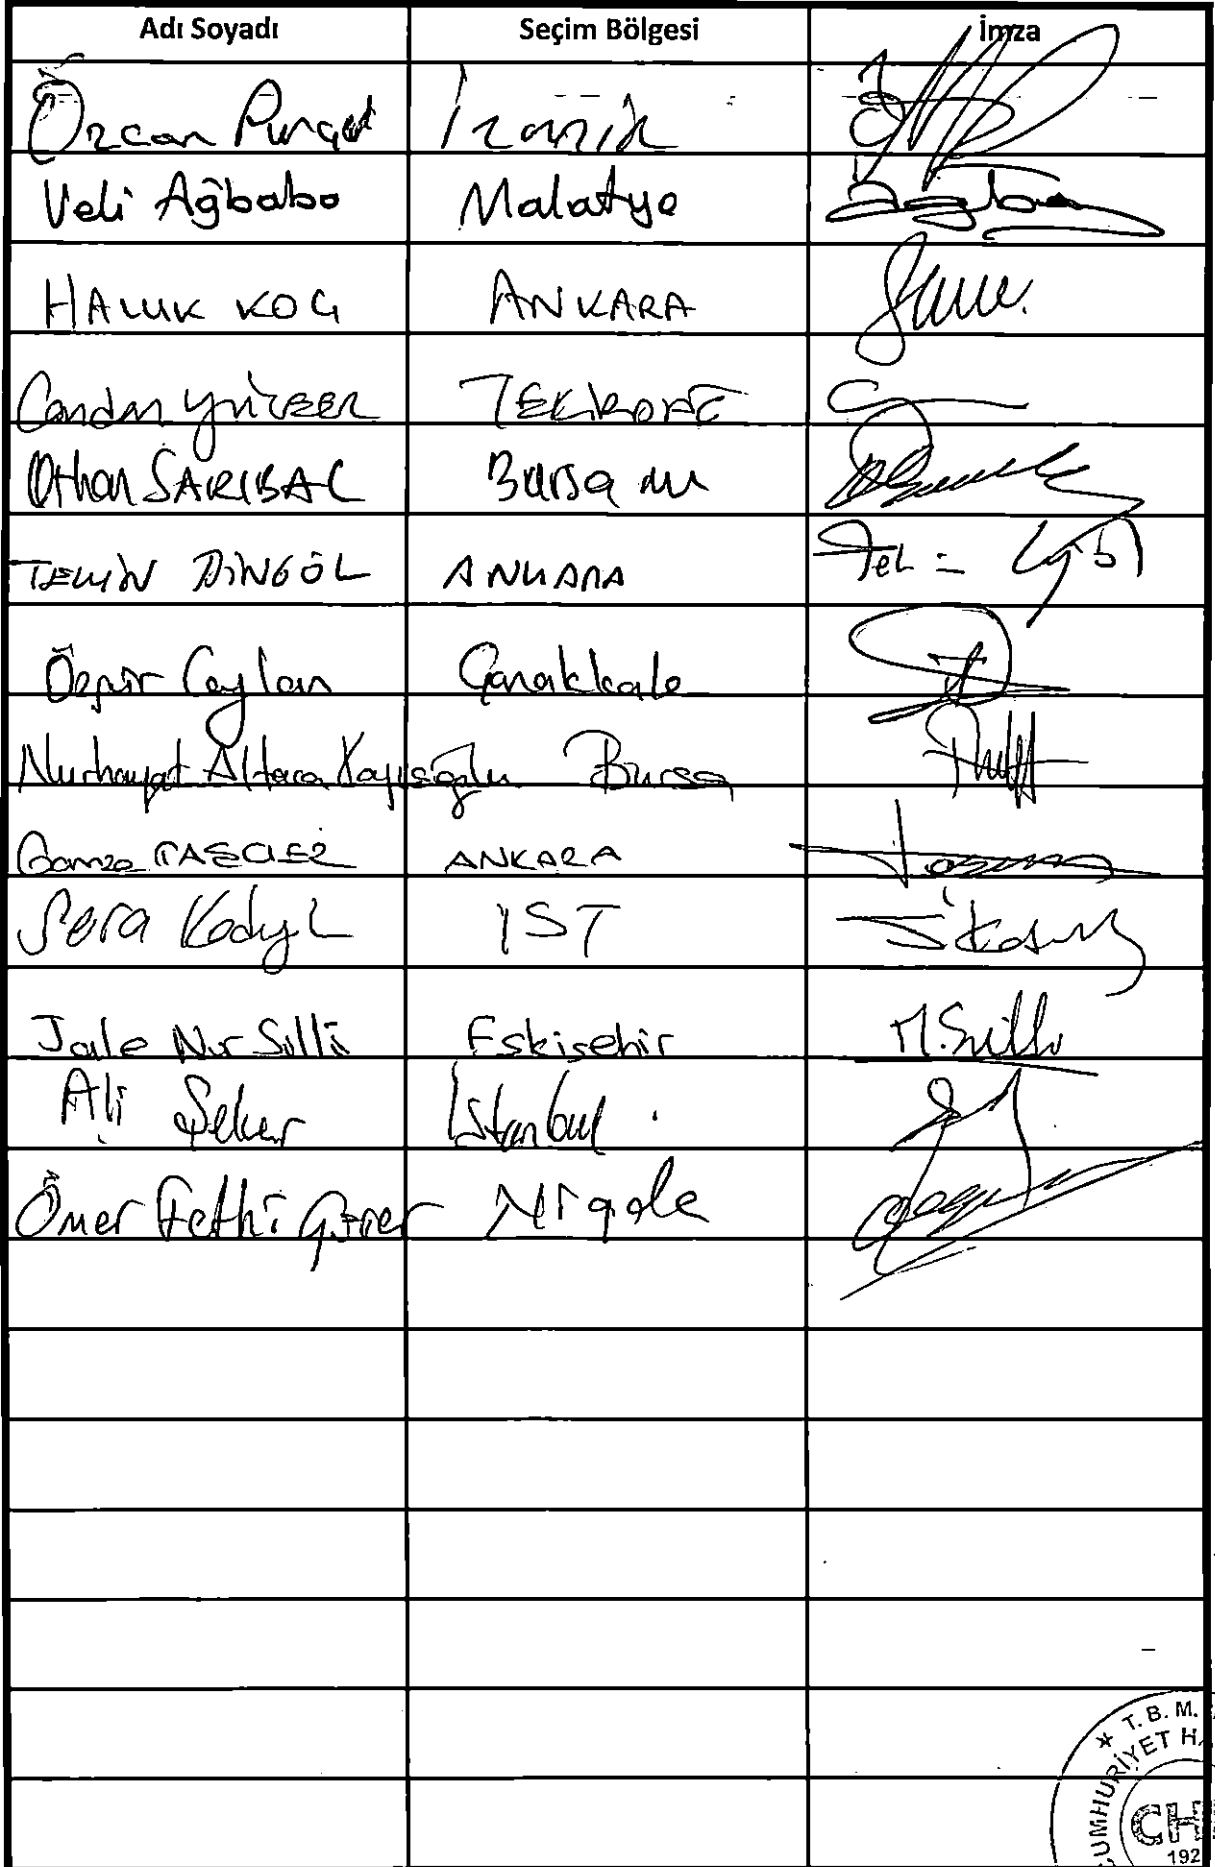 Adı Soyadı Seçim Bölgesi İmza
Özcan Purçu İzmir
Veli Ağbaba Malatya
HALUK KOÇ ANKARA
Candan YÜCEER TEKİRDAĞ
Orhan SARIBAL Bursa
TEKİN BİNGÖL ANKARA
Özgür Ceylan Çanakkale
Nurhayat Altaca Kayışoğlu Bursa
Gamze TAŞCIER ANKARA
Sera Kadıgil İST
Jale Nur Süllü Eskişehir N.Süllü
Ali Şeker İstanbul
Ömer Fethi Gürer Niğde
T. B. M.
CUMHURİYET HA
CH
192